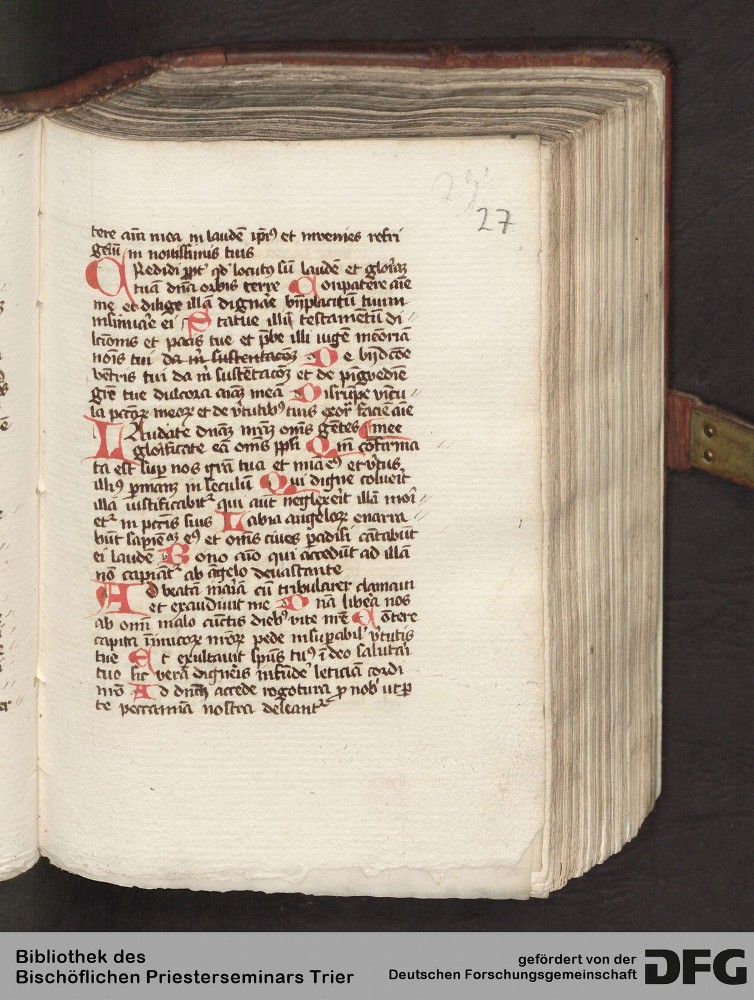 27
tere aīa mea in laudē ip̄iꝰ et invenies refri
geriū in novissimis tuis
Credidi ꝓpt̕ qd̕ locutꝰ sū laudē et gloriaꝫ
tuā dn̄a orbis terre Conpatere aīe
me et dilige illā dignāe bn̄placitū tuum
insinuāe ei Statue illā testamentū di
lc̄ionis et pacis tue et p̄be illi iugē mēoriā
noīs tui da m̄ sustentacōꝫ De bn̄dc̄oē
vētris tui da m̄ sustētacōꝫ et de pīgvedīe
grē tue dulcora aīaꝫ meā Disrūpe vīcu
la pctōꝝ meoꝝ et de v̕tutibꝰ tuis exor̄ faciē aīe
Laudate dn̄aꝫ nr̄aꝫ om̄s gētes mee
glorificate eā om̄s ppl̄i Qm̄ cōfirma
ta est suꝑ nos gr̄a tua et mīa eiꝰ et v̕tus
illiꝰ ꝑmanꝫ in seculū Qui digne coluerit
illā iustificabit̕ qui aut̄ neglexerit illā mori
et̕ in pctīs suis Labia angeloꝝ enarra
būt sapīeaꝫ eiꝰ et om̄s cives padisi cātabūt
ei laudē Bono aīo qui accedūt ad illā
nō capiāt̕ ab āgelo devastante
Ad beatā mariā cū tribularer clamavi
et exaudivit me Dn̄a libera nos
ab om̄i malo cūctis diebꝰ vite nr̄e Cōtere
capita īimicoꝝ nr̄oꝝ pede insuꝑabil̕ v̕tutis
tue Et exultavit spūs tuꝰ ī deo salutari
tuo sic verā digneris infūde leticiā cordi
meo Ad dn̄aꝫ accede rogatura ꝓ nob̕ ut ꝑ
te peccamīa nostra deleant̕
Bibliothek des
Bischöflichen Priesterseminars Trier
gefördert von der
Deutschen Forschungsgemeinschaft
DFG